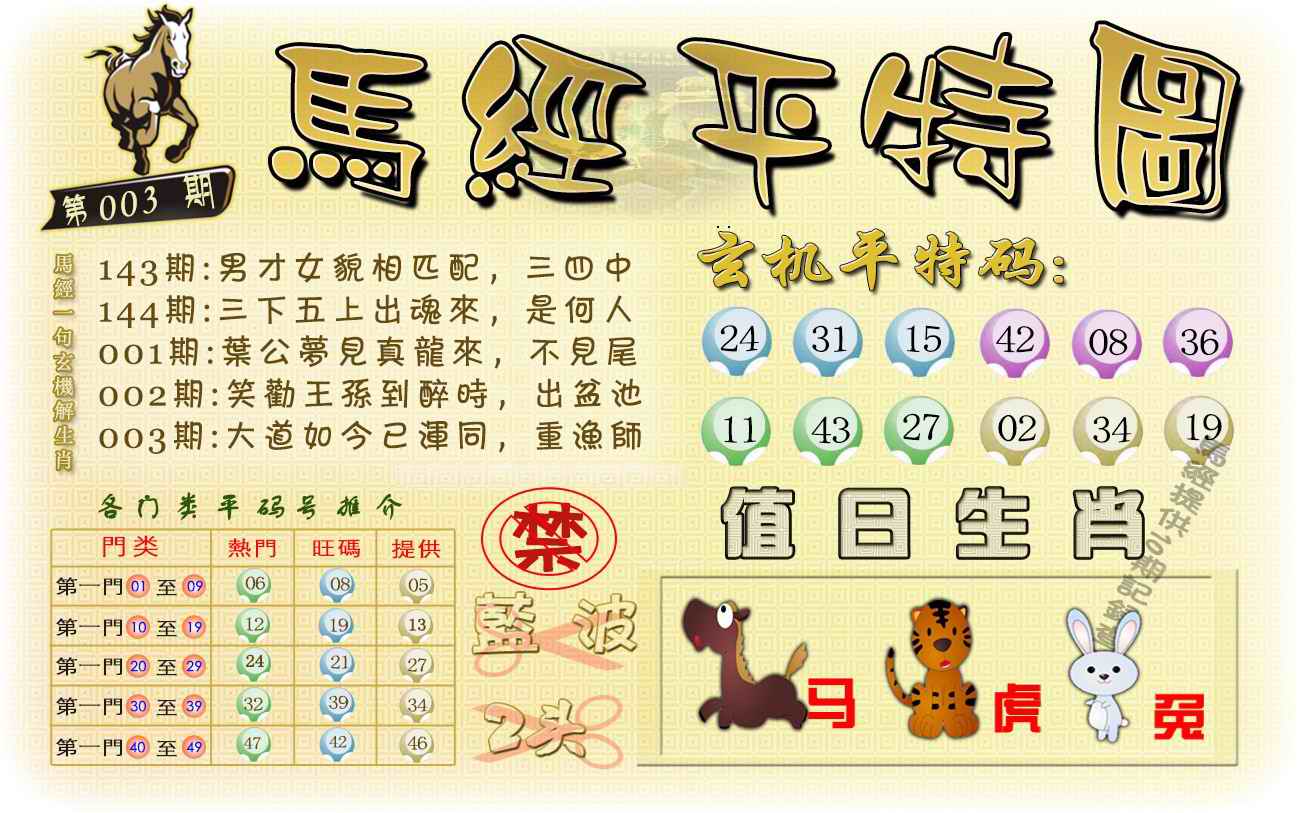 馬經平特圖
第003期
馬經一句玄機解生肖
143期:男才女貌相匹配，三四中
144期:三下五上出魂來，是何人
001期:葉公夢見真龍來，不見尾
002期:笑勸王孫到醉時，出盆池
003期:大道如今已渾同，重漁師
玄机平特码:
24 31 15 42 08 36
11 43 27 02 34 19
各门类平码号推介
門类 熱門 旺碼 提供
第一門 01 至 09 06 08 05
第一門 10 至 19 12 19 13
第一門 20 至 29 24 21 27
第一門 30 至 39 32 39 34
第一門 40 至 49 47 42 46
禁
藍波
2头
值日生肖
马 虎 兔
馬經提供10期記錄